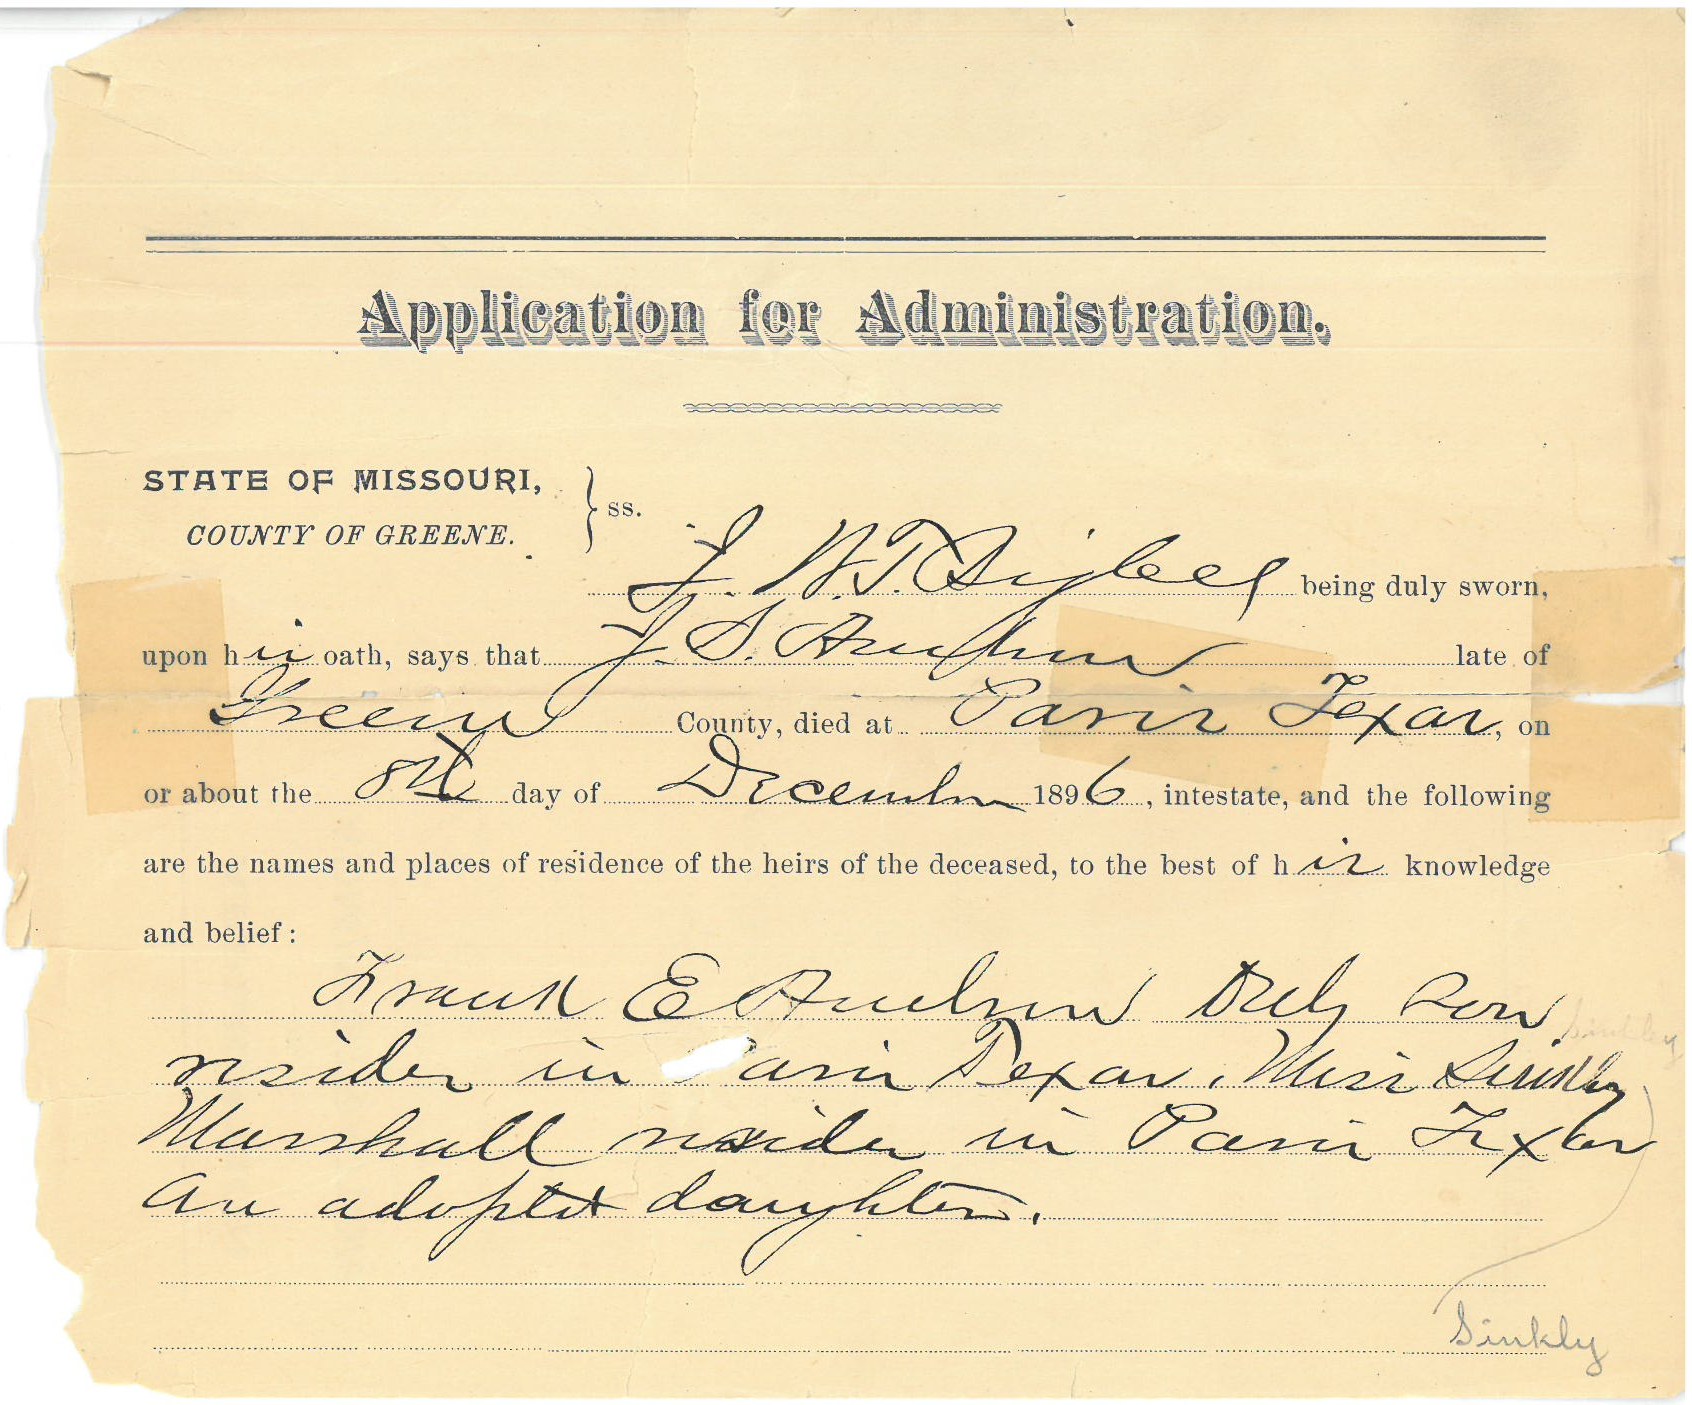 Application for Administration.
STATE OF MISSOURI,
COUNTY OF GREENE.
ss.
J. W. T. being duly sworn,
upon his oath, says that J. S. late of
Greene County, died at Paris Texas, on
or about the 8th day of December 1896, intestate, and the following
are the names and places of residence of the heirs of the deceased, to the best of his knowledge
and belief:
Frank E Son
resides in aris Texas. Miss Sinkly
Marshall resides in Paris Texas
an adopted daughter.
Sinkly